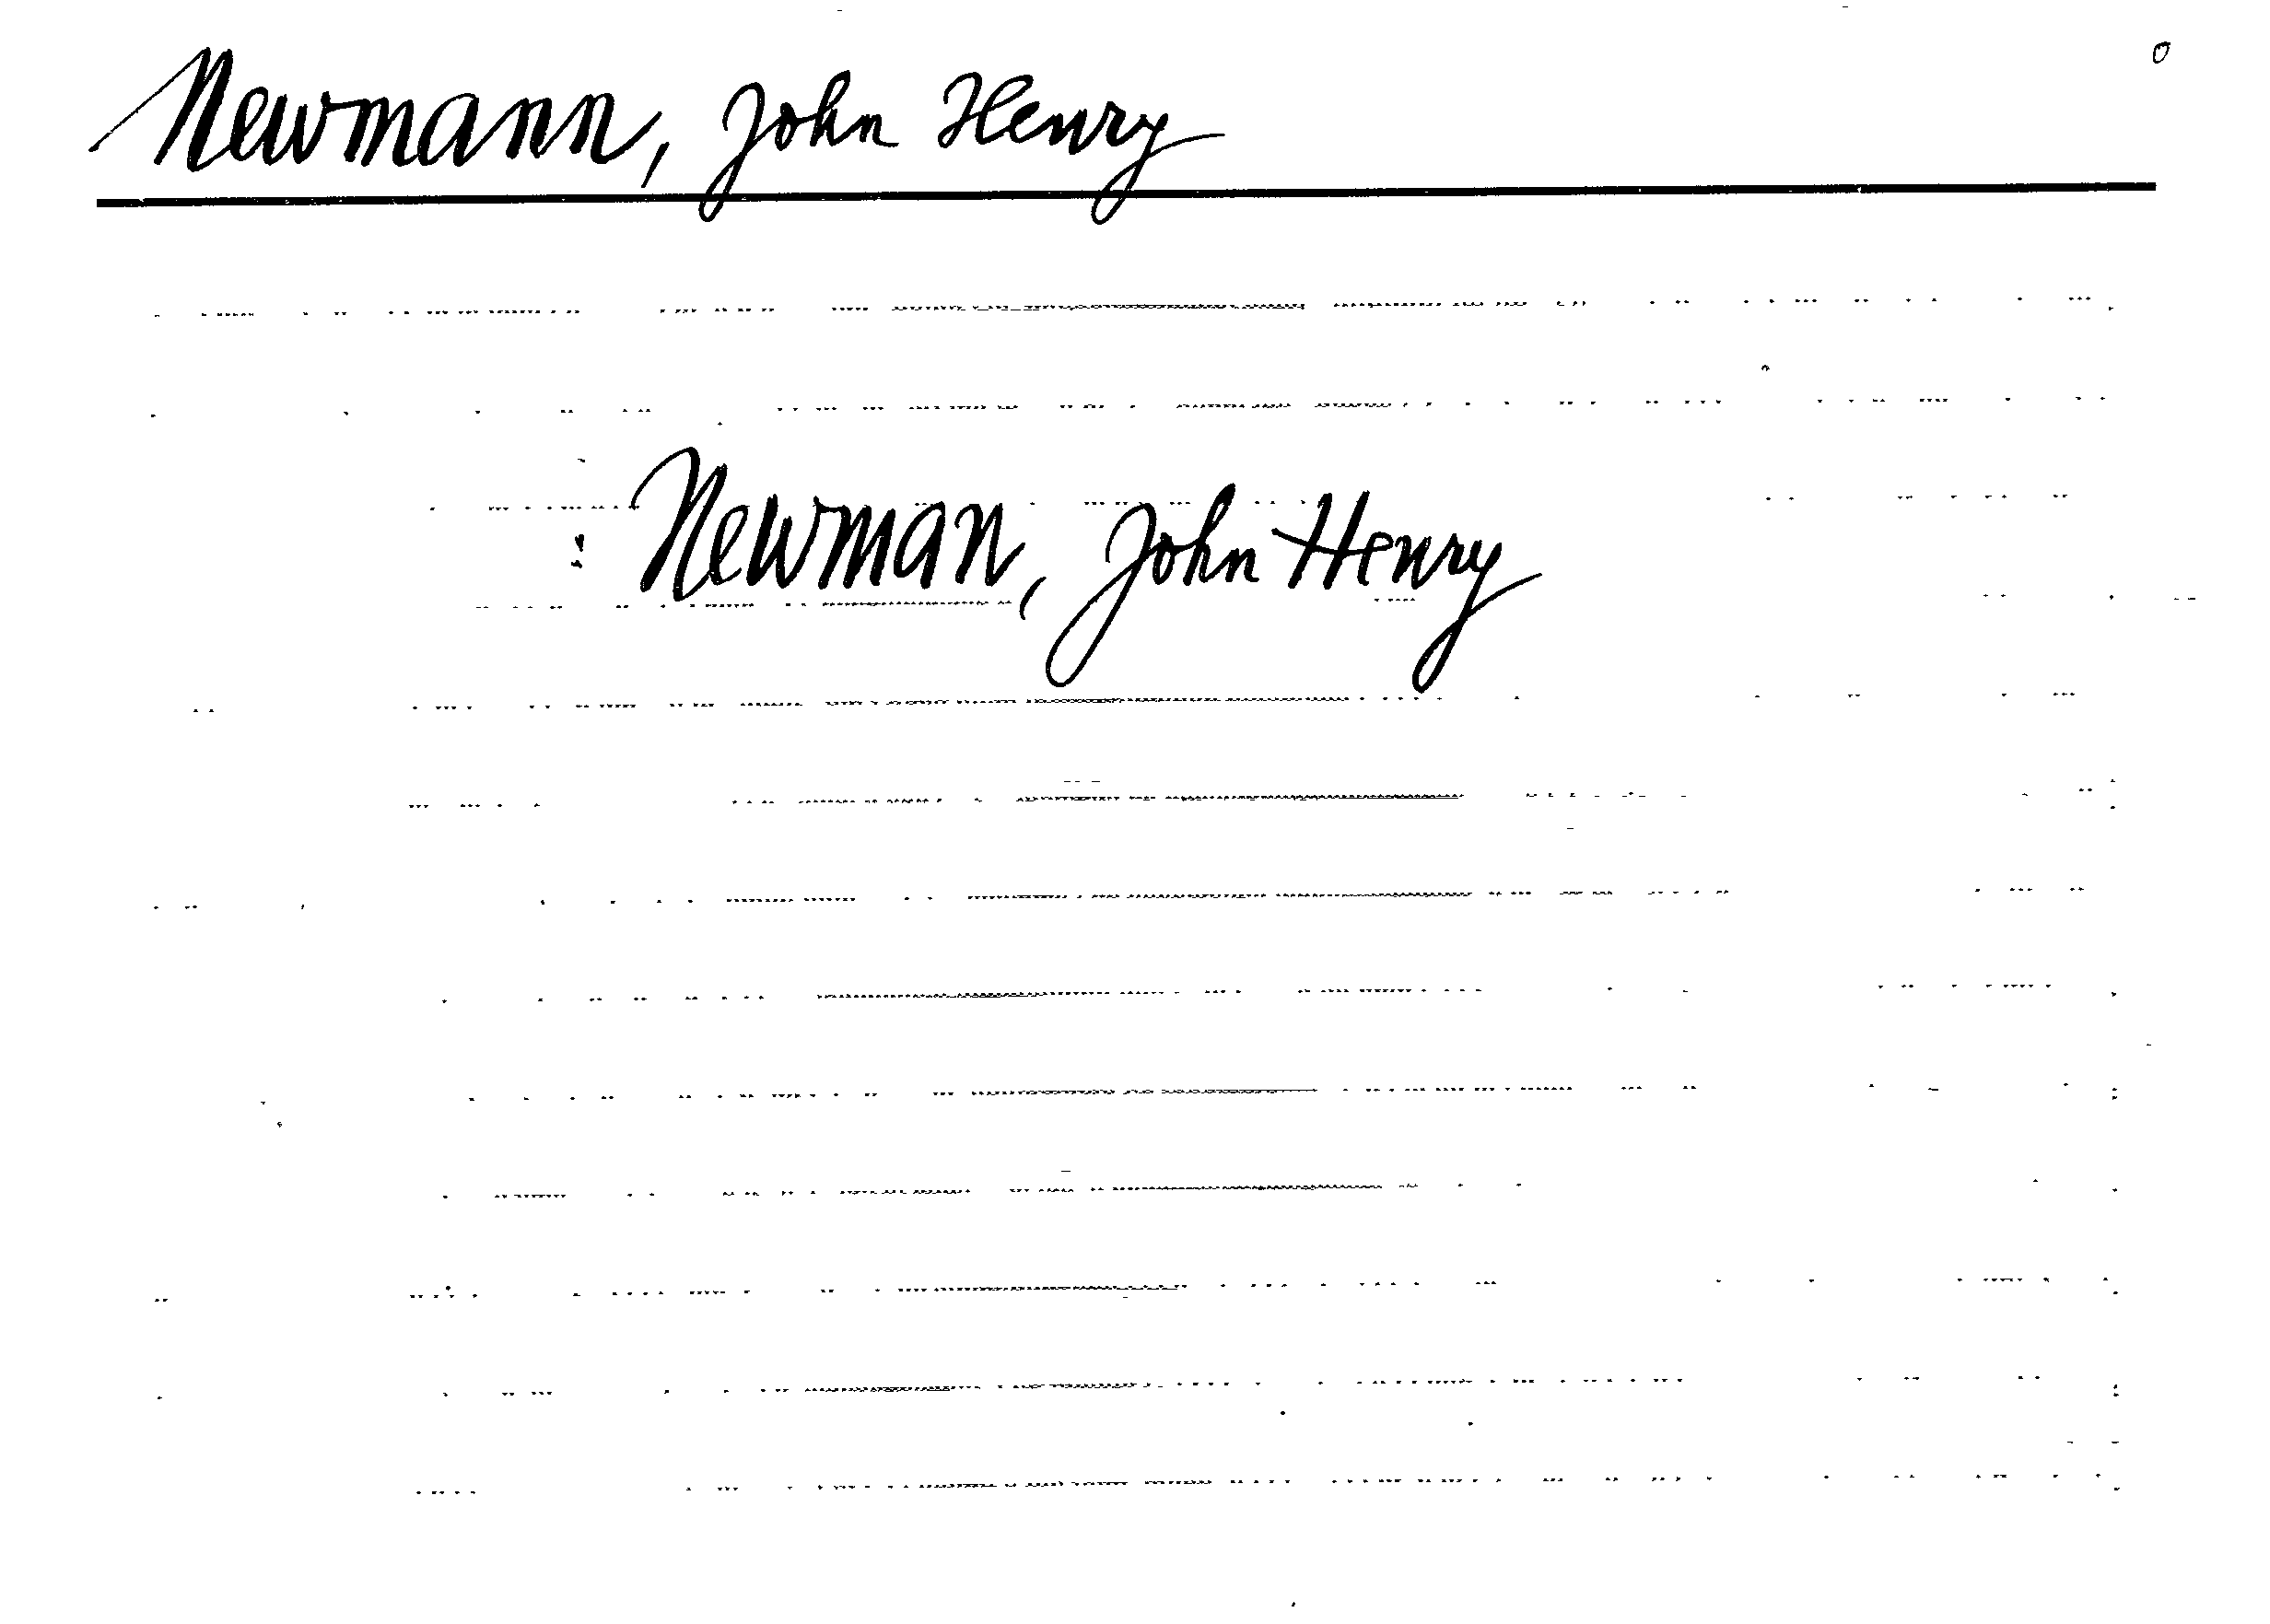 Newmann, John Henry
: Newman, John Henry